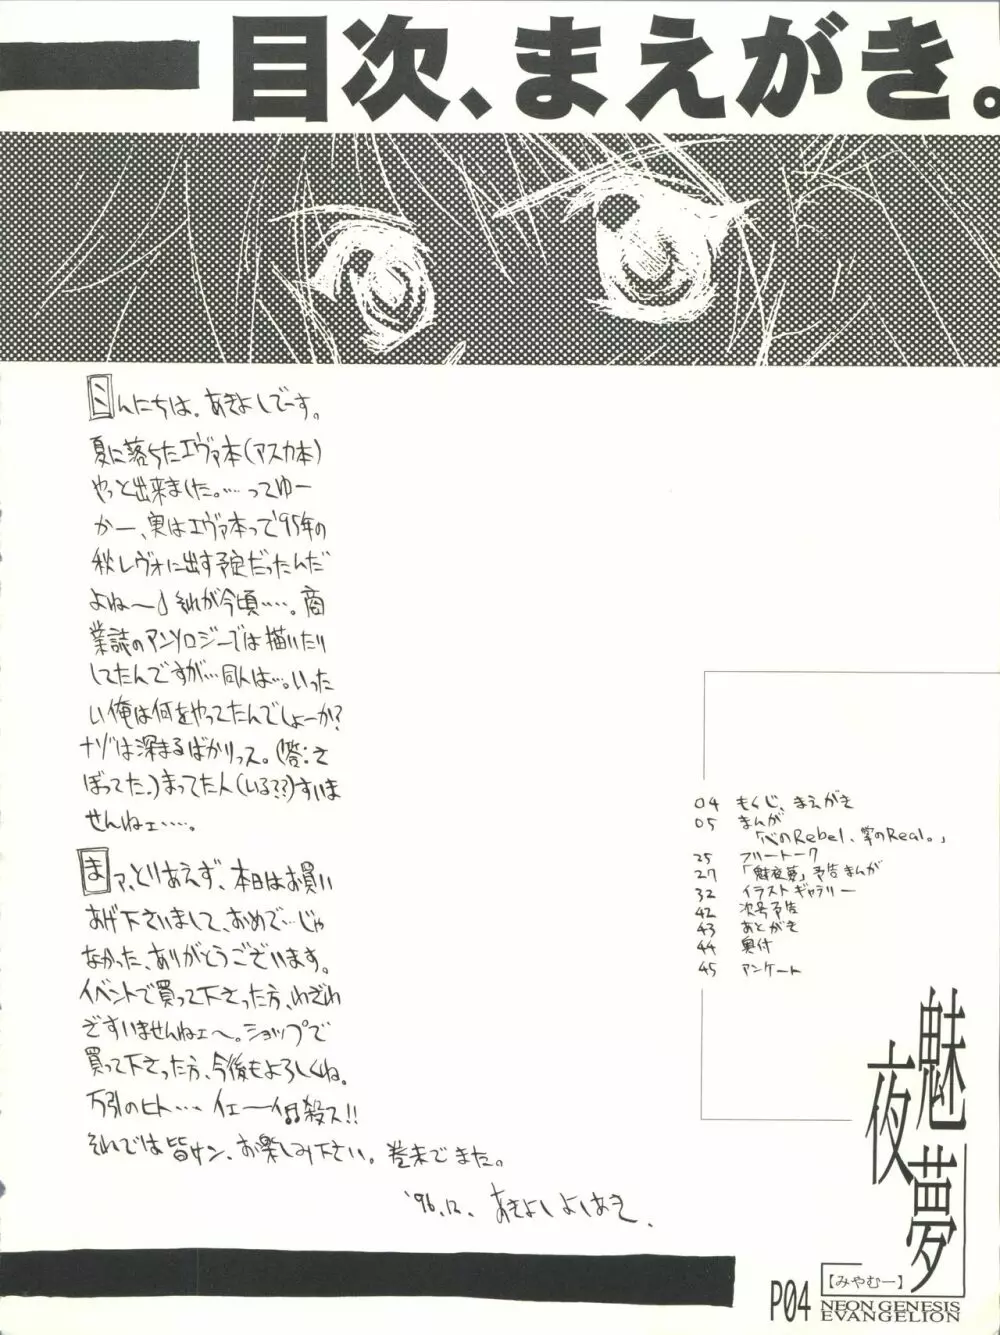 目次、まえがき。
こんにちは。あきよしでーす。
夏に落ちたエヴァ本(アスカ本)
やっと出来ました。…ってゆー
かー、実はエヴァ本って'95年の
秋レヴォに出す予定だったんだ
よね〜♪それが今頃…。商
業誌のアンソロジーでは描いたり
してたんですが…同人は…。いった
い俺は何をやってたんでしょーか?
ナゾは深まるばかりっス。(答:さ
ぼってた。)まってた人(いる??)すいま
せんねェ….
まァ、とりあえず、本日はお買い
あげ下さいまして、おめで…じゃ
なかった、ありがとうございます。
イベントで買って下さった方、わざわ
ざすいませんねェ〜。ショップで
買って下さった方、今後もよろしくね。
万引のヒト… イェーイ♫殺ス!!
それでは皆サン、お楽しみ下さい。巻末でまた。
'96.12. あきよしよしあき.
04 もくじ、まえがき
05 まんが
「心のRebel、掌のReal。」
25 フリートーク
27 「魅夜夢」予告まんが
32 イラストギャラリー
42 次号予告
43 あとがき
44 奥付
45 アンケート
魅夜夢
【みやむー】
P04 NEON GENESIS
EVANGELION